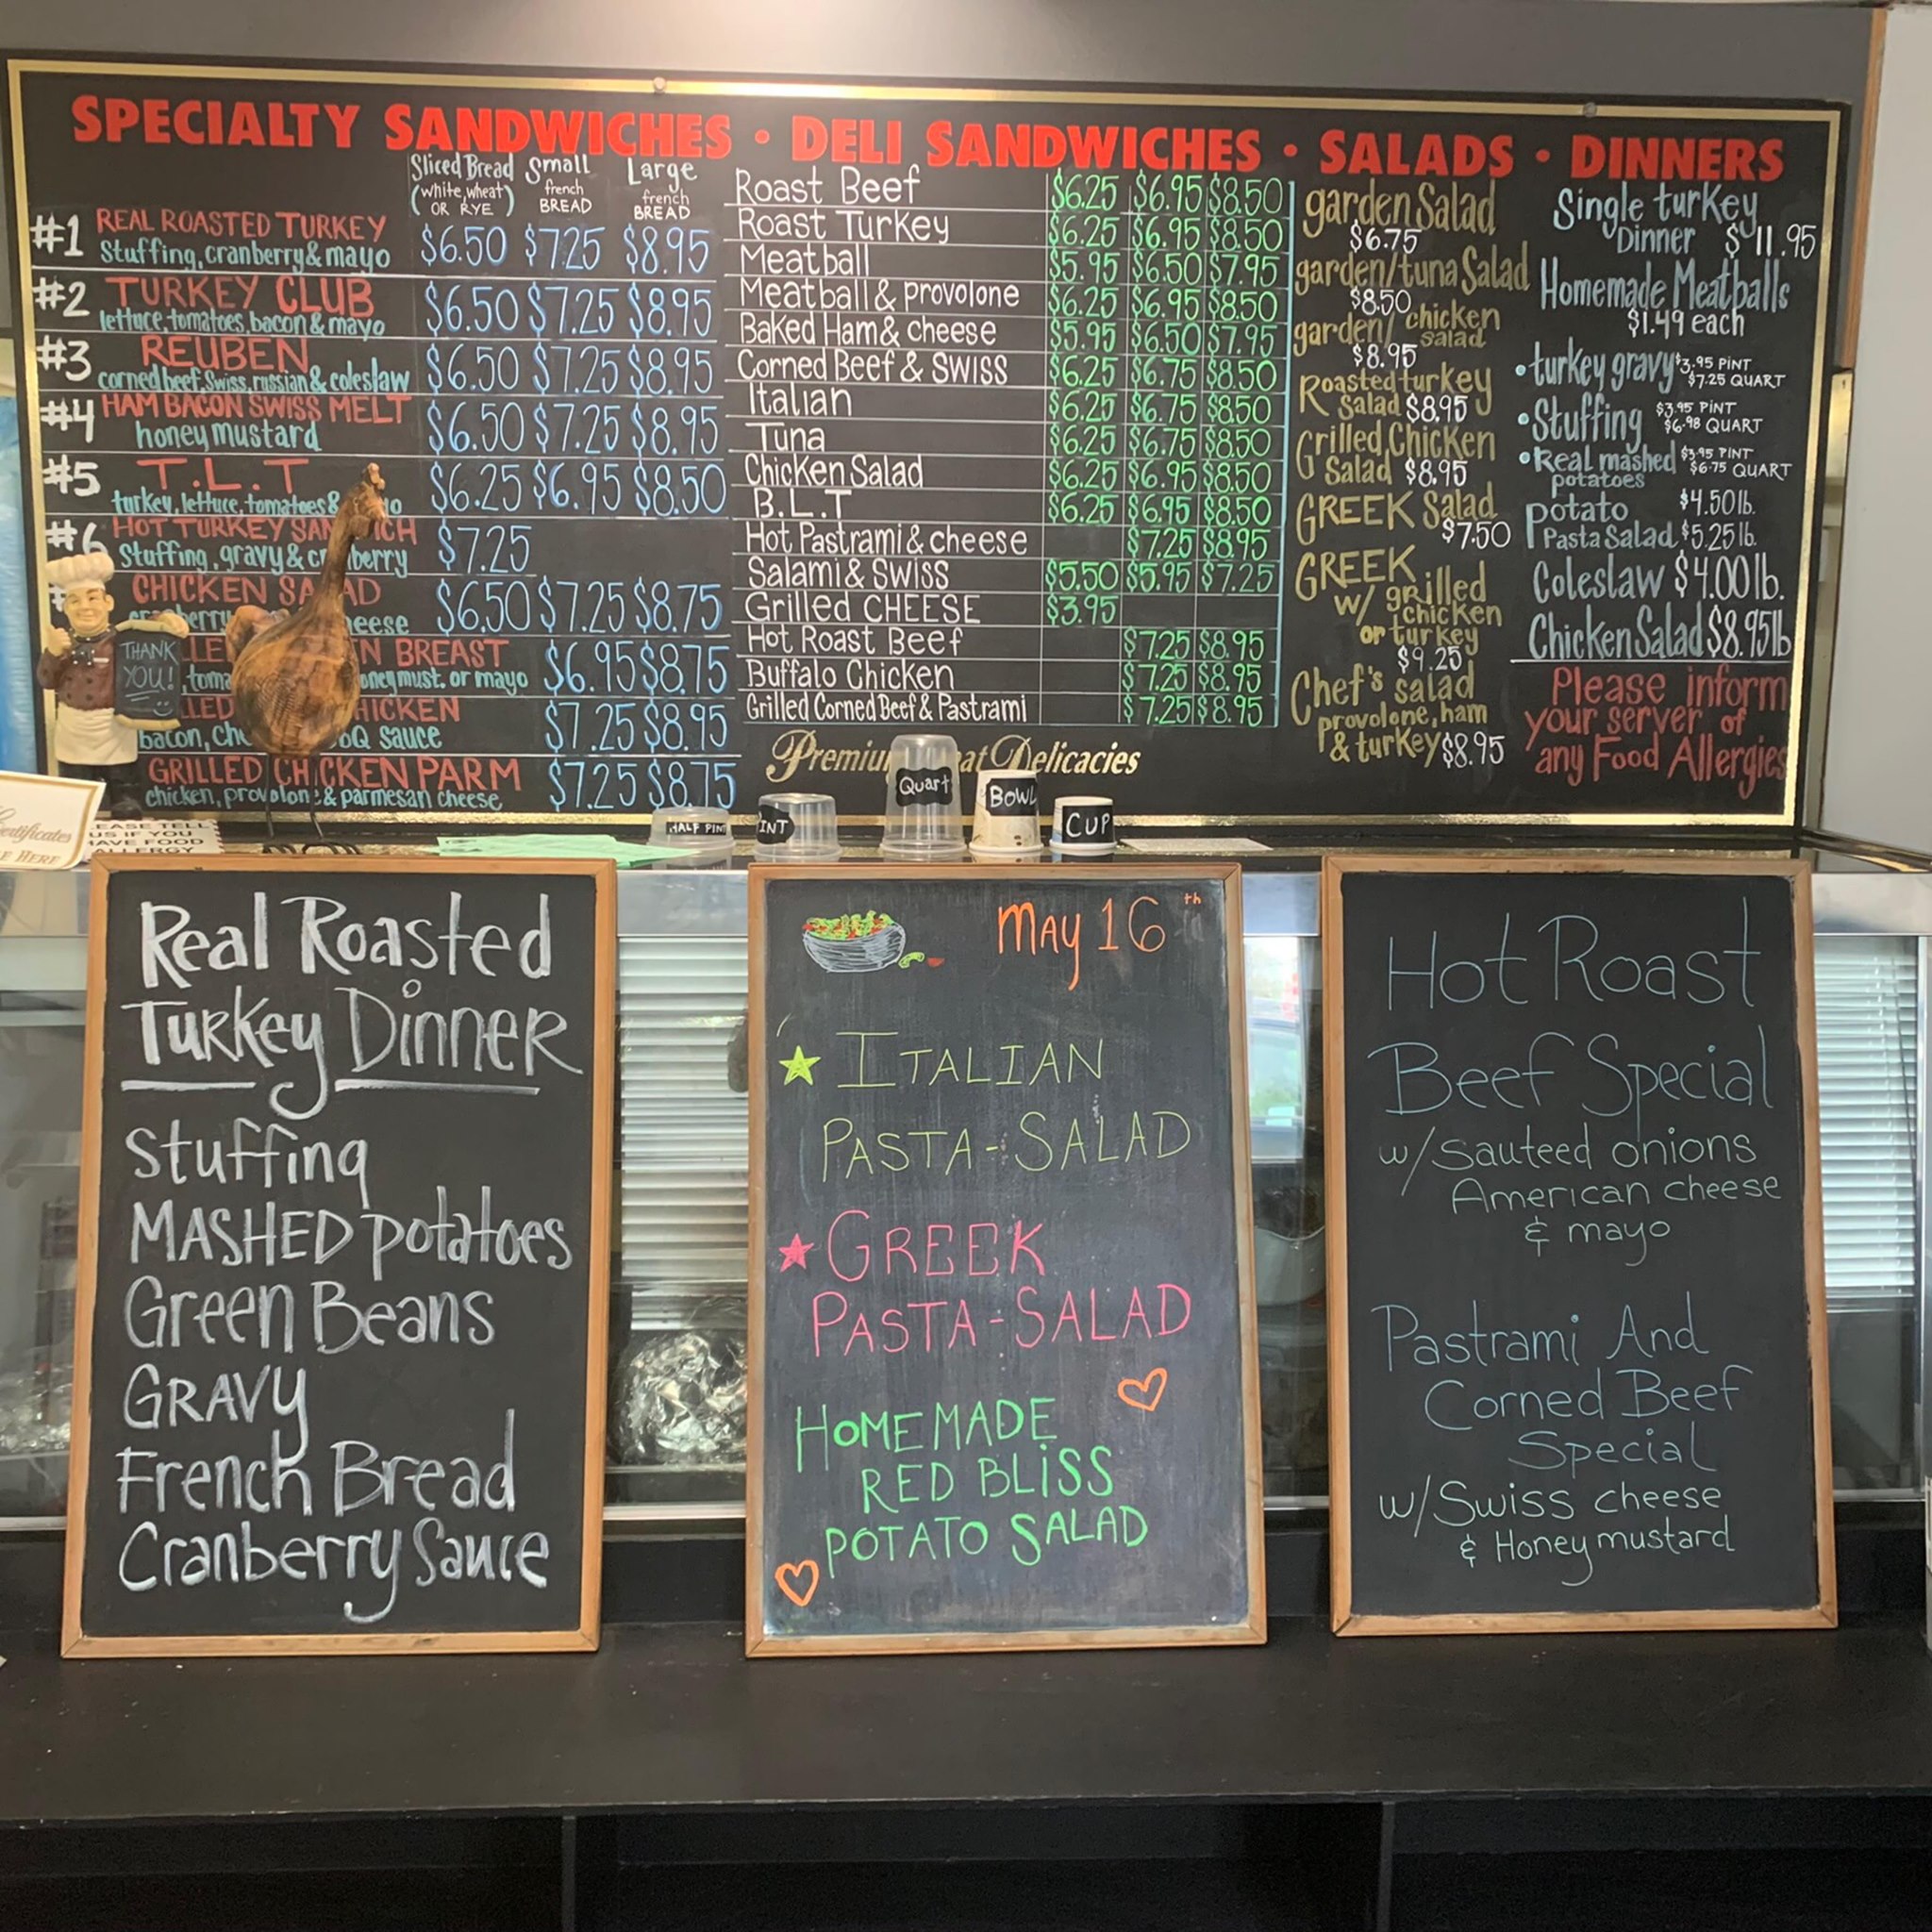 SPECIALTY SANDWICHES • DELI SANDWICHES • SALADS • DINNERS
Sliced Bread Small Large
(white, wheat french french
OR RYE) BREAD BREAD
#1 REAL ROASTED TURKEY
Stuffing, cranberry & mayo $6.50 $7.25 $8.95
#2 TURKEY CLUB
lettuce, tomatoes, bacon & mayo $6.50 $7.25 $8.95
#3 REUBEN
corned beef, Swiss, russian & coleslaw $6.50 $7.25 $8.95
#4 HAM BACON SWISS MELT
honey mustard $6.50 $7.25 $8.95
#5 T.L.T
turkey, lettuce, tomatoes & $6.25 $6.95 $8.50
#6 HOT TURKEY
Stuffing, gravy & $7.25
CHICKEN
$6.50 $7.25 $8.75
BREAST
must. or mayo $6.95 $8.75
bacon, BQ sauce $7.25 $8.95
GRILLED CHICKEN PARM
chicken, provolone & parmesan cheese $7.25 $8.75
Roast Beef $6.25 $6.95 $8.50
Roast Turkey $6.25 $6.95 $8.50
Meatball $5.95 $6.50 $7.95
Meatball & provolone $6.25 $6.95 $8.50
Baked Ham & cheese $5.95 $6.50 $7.95
Corned Beef & SWISS $6.25 $6.75 $8.50
Italian $6.25 $6.75 $8.50
Tuna $6.25 $6.75 $8.50
Chicken Salad $6.25 $6.95 $8.50
B.L.T $6.25 $6.95 $8.50
Hot Pastrami & cheese $7.25 $8.95
Salami & SWISS $5.50 $5.95 $7.25
Grilled CHEESE $3.95
Hot Roast Beef $7.25 $8.95
Buffalo Chicken $7.25 $8.95
Grilled Corned Beef & Pastrami $7.25 $8.95
Delicacies
garden Salad
$6.75
garden/tuna Salad
$8.50
garden/ chicken
salad
$8.95
Roasted turkey
Salad $8.95
Grilled Chicken
Salad $8.95
GREEK Salad
$7.50
GREEK
w/ grilled
chicken
or turkey
$9.25
Chef's salad
provolone, ham
& turkey $8.95
Single turkey
Dinner $11.95
Homemade Meatballs
$1.49 each
• turkey gravy $3.95 PINT
$7.25 QUART
• Stuffing $3.95 PINT
$6.98 QUART
• Real mashed $3.95 PINT
potatoes $6.75 QUART
potato $4.50 lb.
Pasta Salad $5.25 lb.
Coleslaw $4.00 lb.
Chicken Salad $8.95 lb
Please inform
your server of
any Food Allergies
THANK
YOU!
Certificates
HERE
TELL
US IF YOU
HAVE FOOD
ALLERGY
HALF PINT
Quart
BOWL
CUP
Real Roasted
Turkey Dinner
Stuffing
MASHED potatoes
Green Beans
GRAVY
French Bread
Cranberry Sauce
May 16th
ITALIAN
PASTA-SALAD
GREEK
PASTA-SALAD
HOMEMADE
RED BLISS
POTATO SALAD
Hot Roast
Beef Special
w/Sauteed onions
American cheese
& mayo
Pastrami And
Corned Beef
Special
w/Swiss cheese
& Honey mustard